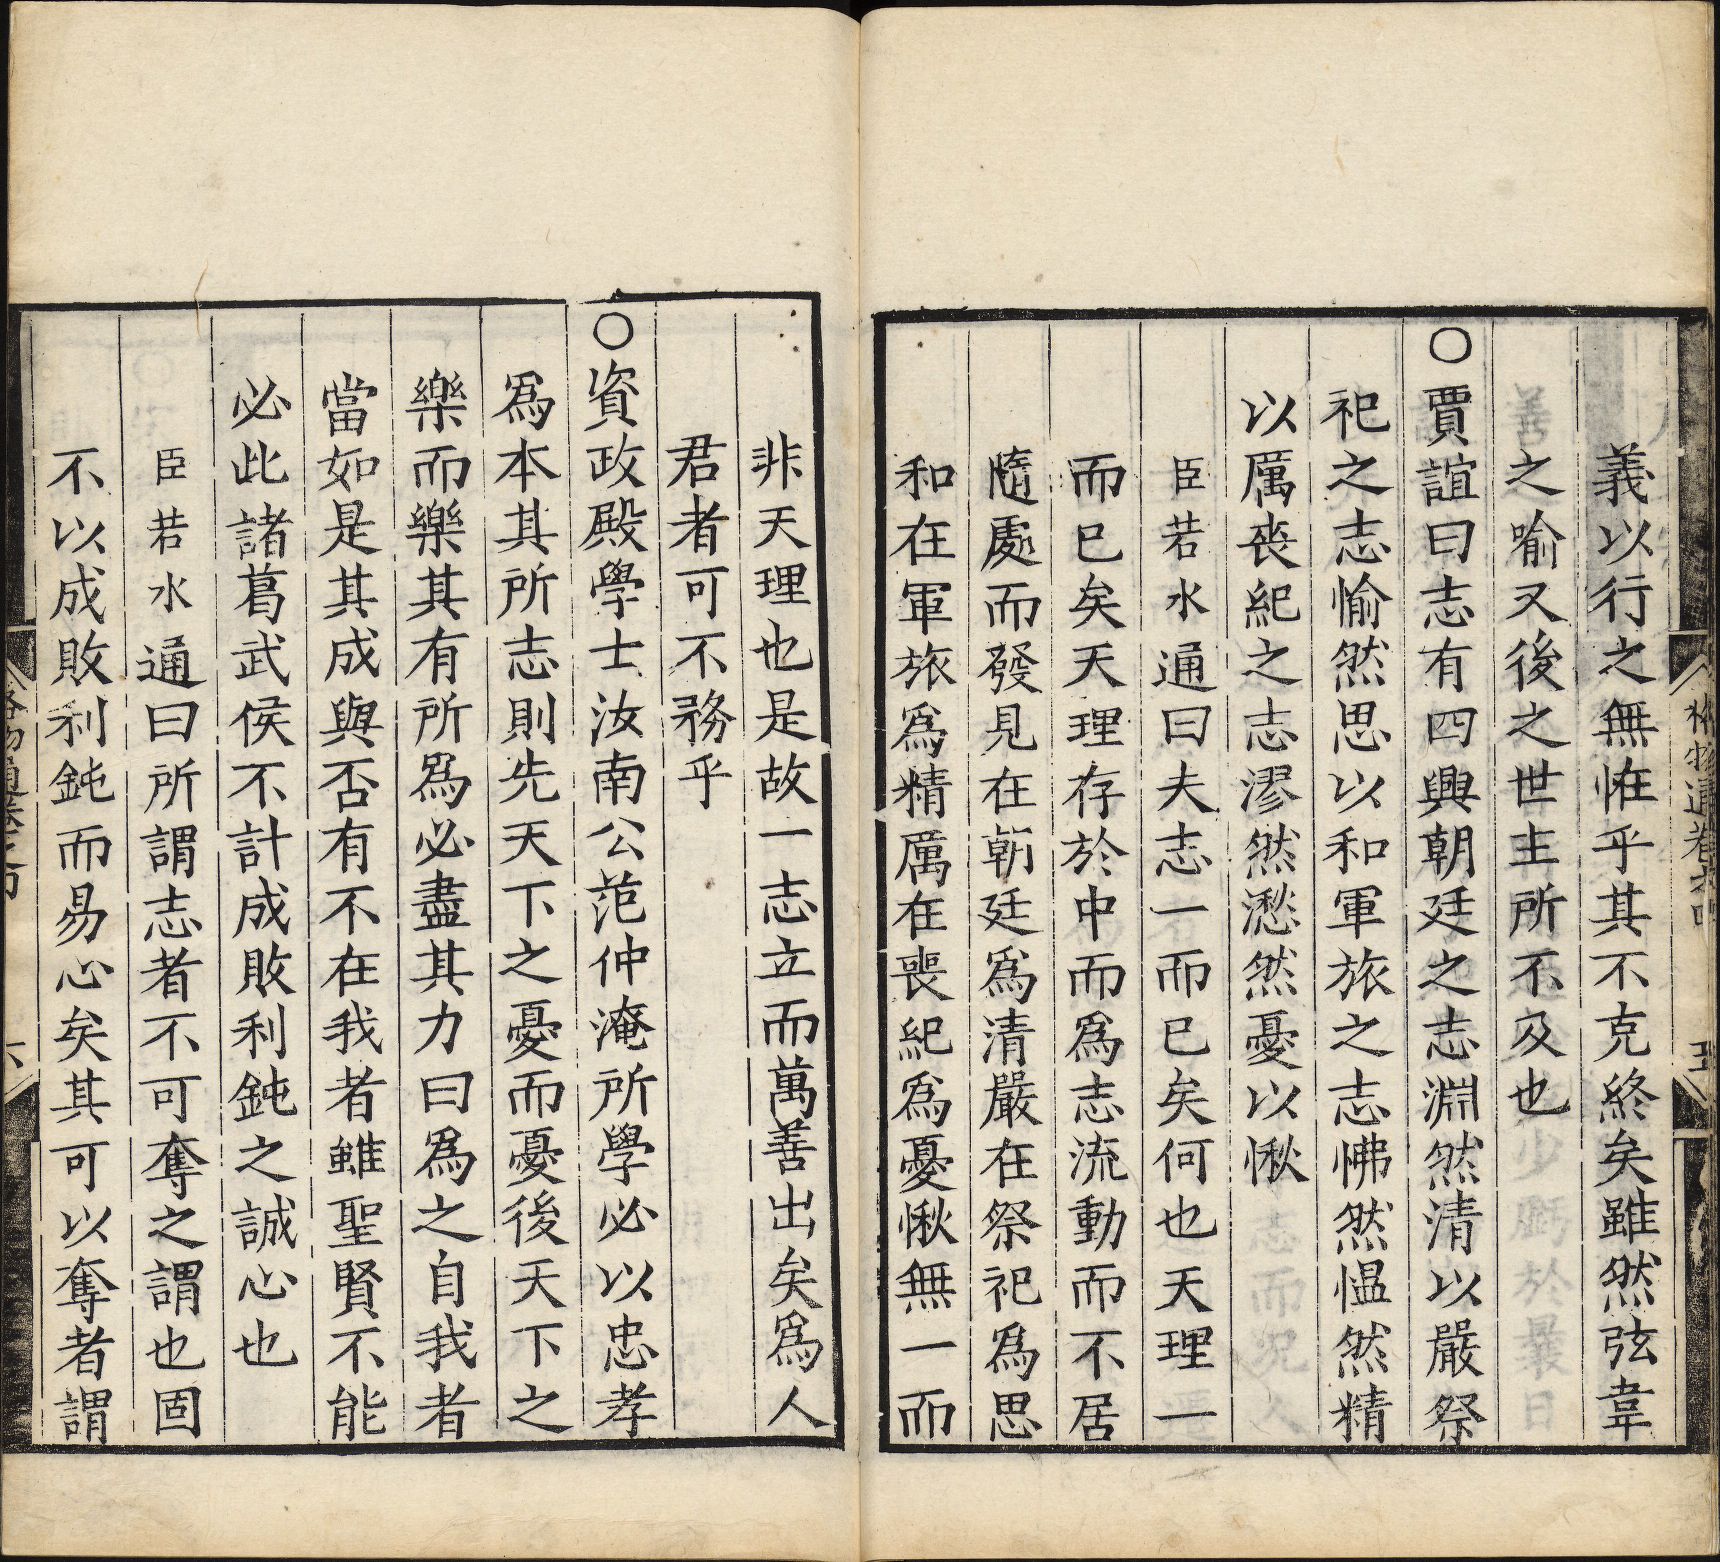 義以行之無惟乎其不克終矣雖然弦韋
之喻又後之世主所不及也
○賈誼曰志有四興朝廷之志淵然清以嚴祭
祀之志愉然思以和軍旅之志怫然愠然精
以厲喪紀之志漻然懮然憂以愀
臣若水通曰夫志一而已矣何也天理一
而已矣天理存於中而為志流動而不居
隨處而發見在朝廷為清嚴在祭祀為思
和在軍旅為精厲在喪紀為憂愀無一而
非天理也是故一志立而萬善出矣為人
君者可不務乎
○資政殿學士汝南公范仲淹所學必以忠孝
為本其所志則先天下之憂而憂後天下之
樂而樂其有所為必盡其力曰為之自我者
當如是其成與否有不在我者雖聖賢不能
必此諸葛武侯不計成敗利鈍之誠心也
臣若水通曰所謂志者不可奪之謂也固
不以成敗利鈍而易心矣其可以奪者謂
格物通卷之四
六